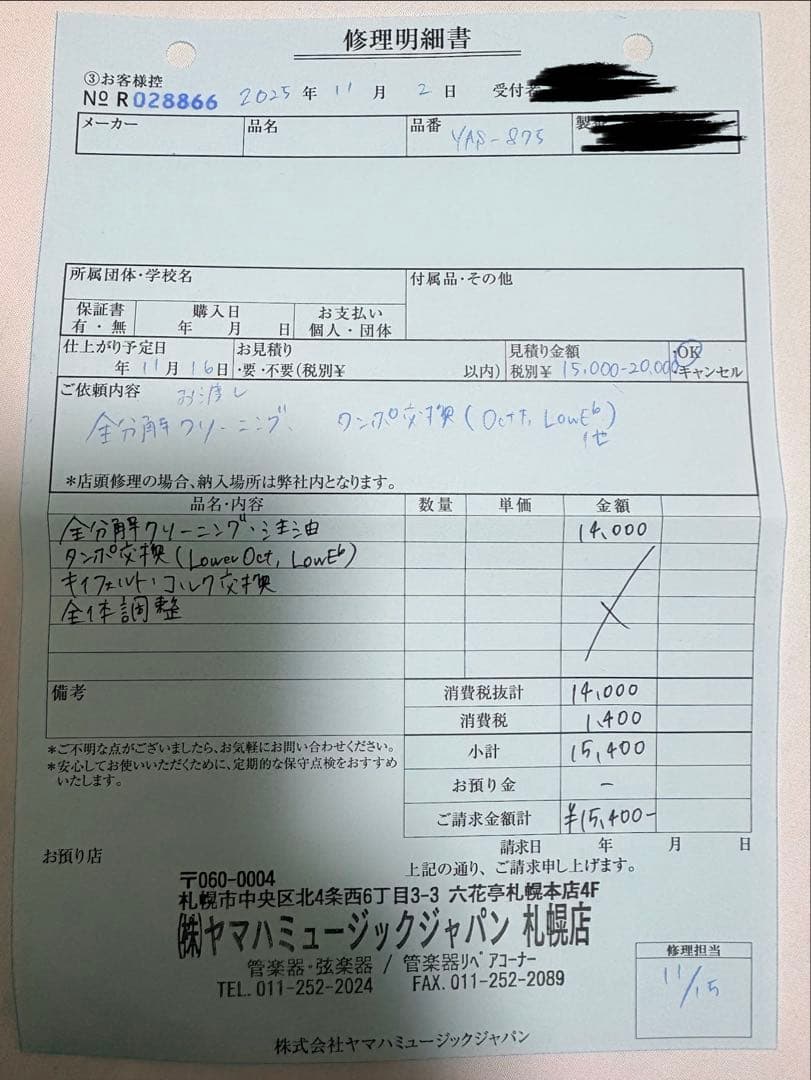 修理明細書
③お客様控
№ R 028866 2025年 11月 2日 受付者
メーカー 品名 品番 YAS-875 製
所属団体・学校名 付属品・その他
保証書 購入日 お支払い
有・無 年 月 日 個人・団体
仕上がり予定日 お見積り 見積り金額 ・OK
年 11月 16日 ・要・不要(税別¥ 以内) 税別¥ 15,000-20,000 ・キャンセル
ご依頼内容 お渡し
全分解クリーニング、 タンポ交換(Oct, LowE♭)
他
*店頭修理の場合、納入場所は弊社内となります。
品名・内容 数量 単価 金額
全分解クリーニング・注油 14,000
タンポ交換(LowerOct, LowE♭)
キイフェルト・コルク交換
全体調整
備考 消費税抜計 14,000
消費税 1,400
*ご不明な点がございましたら、お気軽にお問い合わせください。 小計 15,400
*安心してお使いいただくために、定期的な保守点検をおすすめ
いたします。
お預り金 −
ご請求金額計 ¥15,400-
請求日 年 月 日
お預り店 上記の通り、ご請求申し上げます。
〒060-0004
札幌市中央区北4条西6丁目3-3 六花亭札幌本店4F
(株)ヤマハミュージックジャパン 札幌店
管楽器・弦楽器 / 管楽器リペアコーナー
TEL.011-252-2024 FAX.011-252-2089
修理担当
11/15
株式会社ヤマハミュージックジャパン